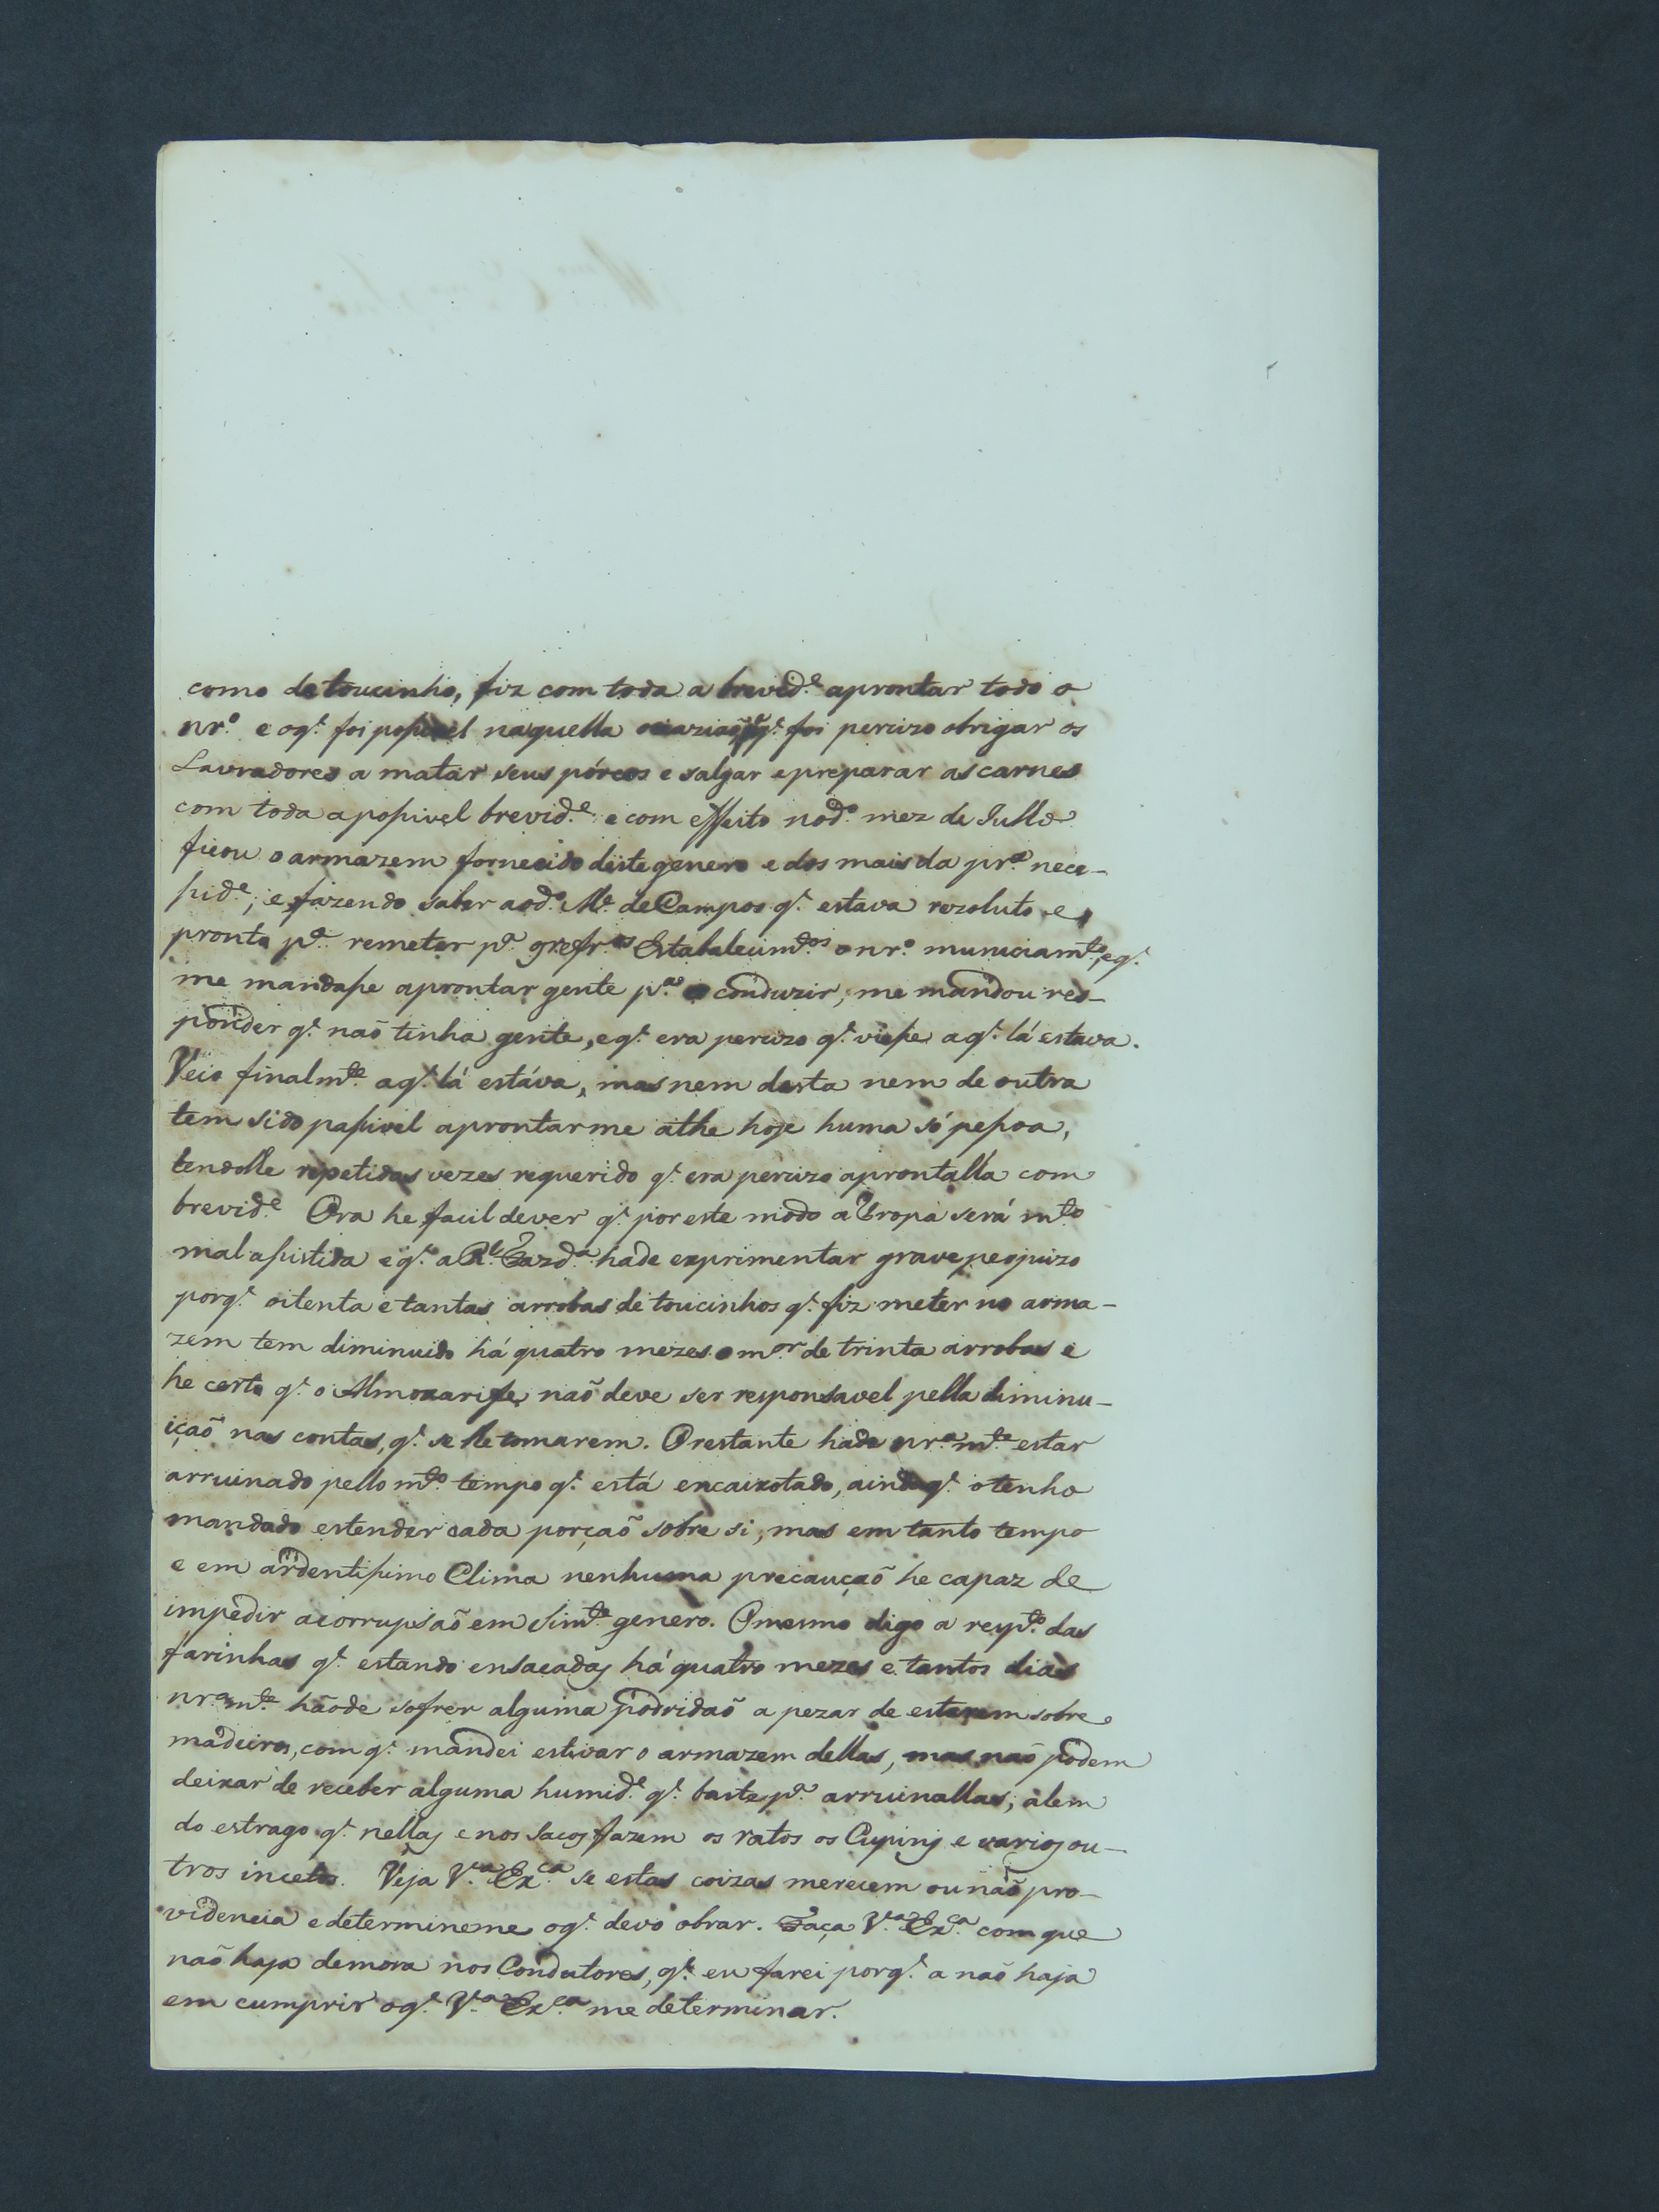 como de toucinho, fiz com toda a brevid.e aprontar todo o
nr.o e oq.e foi possivel naquella ocaziaõ q.e foi percizo obrigar os
Lavradores a matar seus pórcos e salgar e preparar as carnes
com toda a possivel brevid.e e com effeito no d.o mez de Julho
ficou o armazem fornecido deste genero e dos mais da pr.a nece-
ssid.e; e fazendo saber ao d.o M.e de Campos q.e estava rezoluto e
pronto p.a remeter p.a os Estabalecim.tos o nr.o municiam.to, e q.e
me mandasse aprontar gente p.a o conduzir, me mandou res-
ponder q.e naõ tinha gente, e q.e era percizo q.e viesse a q.e lá estava.
Veio finalm.te a q.e lá estáva, mas nem desta nem de outra
tem sido passivel aprontarme athe hoje huma só pessoa,
tendolle repetidas vezes requerido q.e era percizo aprontalla com
brevid.e Ora he facil dever q.e por este modo a Tropa será m.to
mal assistida e q.e a R.l Fazd.a hade exprimentar grave perjuizo
porq.e oitenta e tantas arrobas de toucinhos q.e fiz meter no arma-
zem tem diminuido há quatro mezes o m.or de trinta arrobas e
he certo q.e o Almoxarife naõ deve ser responsavel pella diminu-
içaõ nas contas, q.e se lle tomarem. O restante hade nr.am.te estar
arruinado pello m.to tempo q.e está encaixotado, ainda q.e o tenho
mandado estender cada porçaõ sobre si, mas em tanto tempo
e em ardentissimo Clima nenhuma precauçaõ he capaz de
impedir a corrupsaõ em Sim.te genero. O mesmo digo a resp.to das
farinhas q.e estando ensacadas há quatro mezes e tantos dias
nr.am.te hãode sofrer alguma podridaõ a pezar de estarem sobre
madeiros, com q.e mandei estivar o armazem dellas, mas naõ podem
deixar de receber alguma humid.e q.e baste p.a arruinallas, alem
do estrago q.e nellas e nos Sacos fazem os ratos os Cupins e varios ou-
tros incetos. Veja V.a Ex.ca se estas coizas merecem ou naõ pro-
videncia e determineme oq.e devo obrar. Faça V.a Ex.ca com que
naõ haja demora nos Condutores, q.e eu farei porq.e a naõ haja
em cumprir oq.e V.a Ex.ca me determinar.